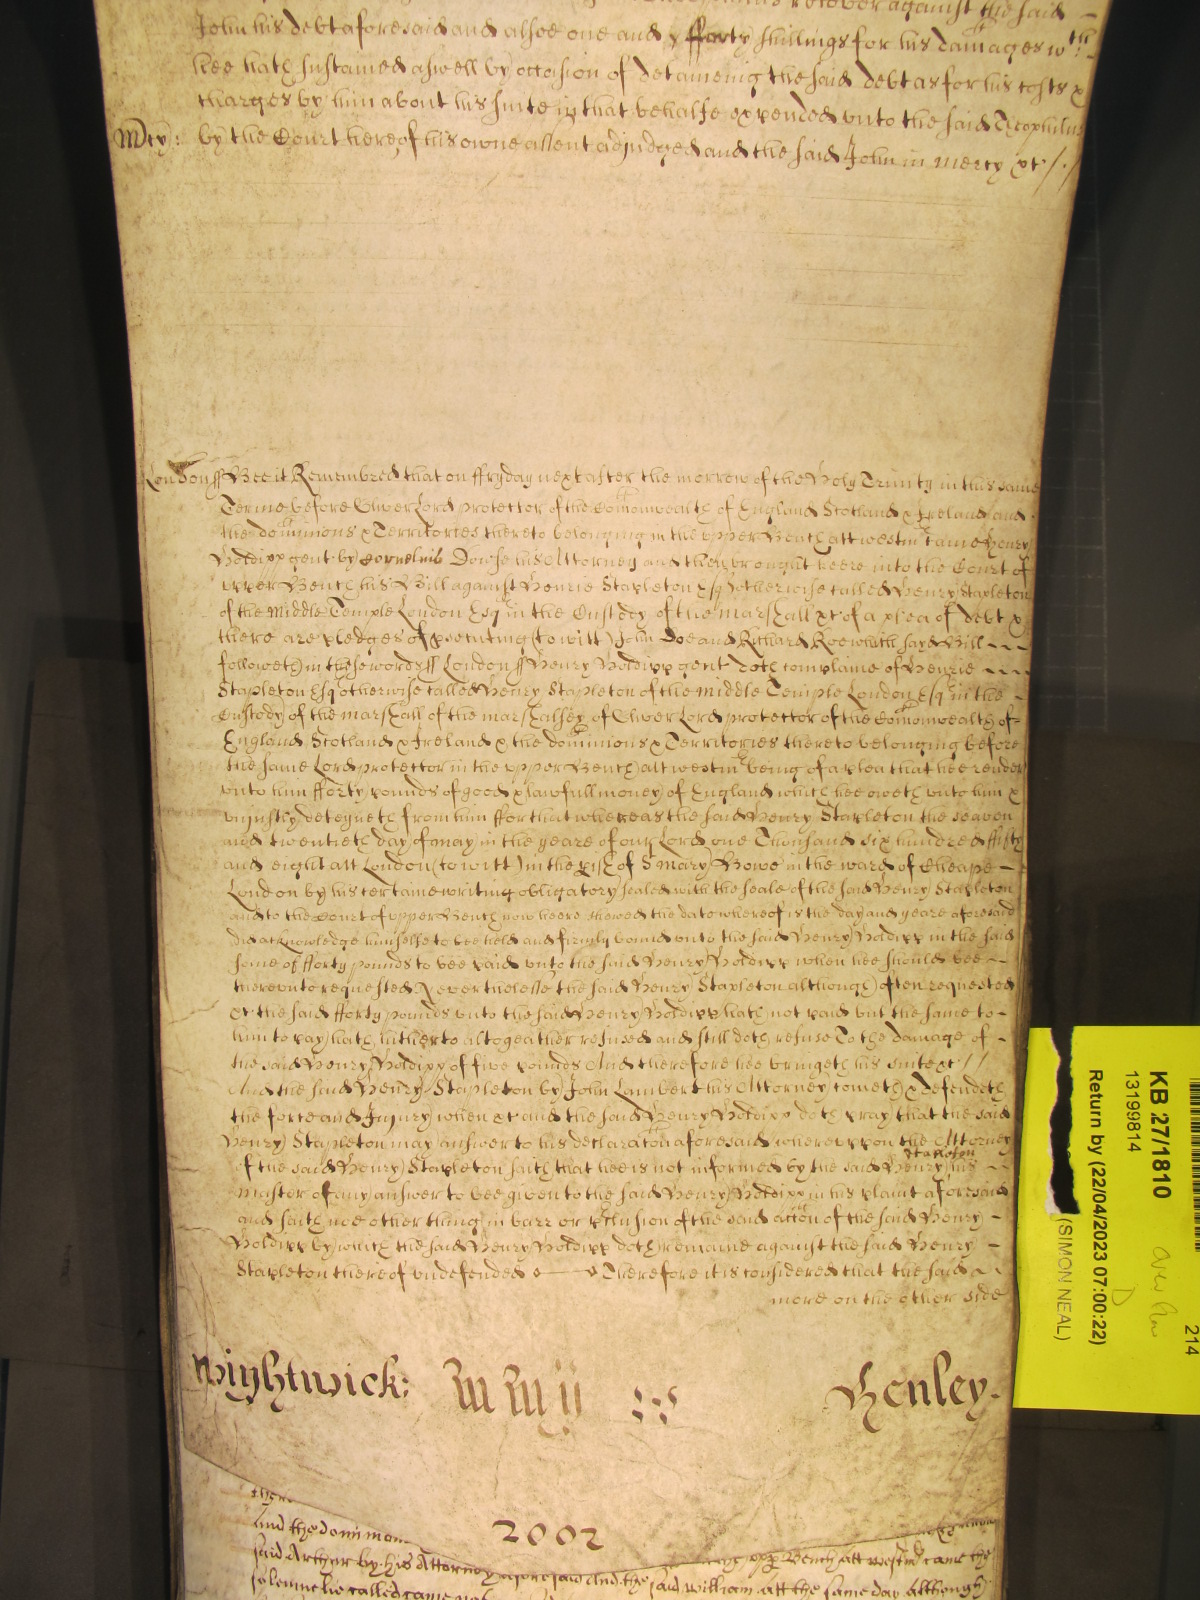 recover against the said
John his debt aforesaid and alsoe one and fforty shillings for his damages wch
hee hath sustained aswell by occasion of deteineing the said debt as for his costs &
charges by him about his suite in that behalfe expended unto the said Theophilus
Mcy: by the Court here of his owne assent adjudged and the said John in mercy &c //
London ss Bee it Remembred that on ffryday next after the morrow of the Holy Trinity in this same
Terme before Oliver Lord protector of the Comonwealth of England Scotland & Ireland and
the dominions & Territories thereto belonging in the upper Bench att westm came Henry
Holdipp gent by Cornelius Dowse his Attorney and then brought heere into the Court of
upper Bench his Bill against Henrie Stapleton Esq otherwise called Henry Stapleton
of the Middle Temple London Esq in the Custody of the marshall &c of a plea of debt &
there are pledges of prosecuting (to witt) John Doe and Richard Roe which said Bill
followeth in these words ss London ss Henry Holdipp gent doth complaine of Henrie
Stapleton Esq otherwise called Henry Stapleton of the Middle Temple London Esq in the
Custody of the marshall of the marshalsey of Oliver Lord protector of the Comonwealth of
England Scotland & Ireland & the dominions & Territories thereto belonging before
the same Lord protector in the upper Bench att westm being of a plea that hee render
unto him fforty pounds of good & lawfull money of England which hee oweth unto him &
unjustly deteyneth from him ffor that whereas the said Henry Stapleton the seaven
and twentieth day of may in the yeare of our Lord one Thousand six hundred ffifty
and eight att London (to witt) in the pish of S Mary Bowe in the ward of Cheape
London by his certaine writing obligatory sealed with the seale of the said Henry Stapleton
and to the Court of upper Bench now heere shewed the date whereof is the day and yeare aforesaid
did acknowledge himselfe to bee held and firmly bound unto the said Henry Holdipp in the said
some of fforty pounds to bee paid unto the said Henry Holdipp when hee should bee
thereunto requested Neverthelesse the said Henry Stapleton although often requested
&c the said fforty pounds unto the said Henry Holdipp hath not paid but the same to
him to pay hath hitherto altogeather refused and still doth refuse To the damage of
the said Henry Holdipp of five pounds And therefore hee bringeth his suite &c //
And the said Henry Stapleton by John Lambert his Attorney cometh & defendeth
the force and Injury when &c and the said Henry Holdipp doth pray that the said
Henry Stapleton may answer to his declaraton aforesaid whereuppon the Attorney
of the said Henry Stapleton saith that hee is not informed by the said Henry Stapleton his
master of any answer to bee given to the said Henry Holdipp in his plaint aforesaid
and saith noe other thing in barr or pclusion of the said acton of the said Henry
Holdipp by which the said Henry Holdipp doth remaine against the said Henry
Stapleton thereof undefended Therefore it is considered that the said
more on the other side
Wightwick: Henley.
2002
And the dominion
upp Bench att westm came the
said Arthur by his Attorney aforesaid And the said William att the same day Although
solemnelie called came not
KB 27/1810
13199814
Return by (22/04/2023 07:00:22)
(SIMON NEAL)
214